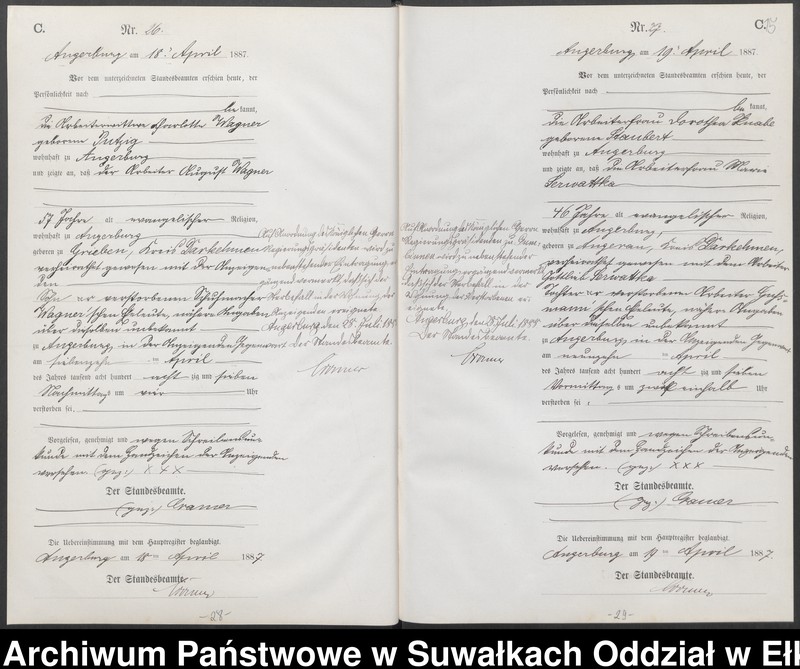 C.
Nr. 26.
Angerburg am 18. April 1887.
Vor dem unterzeichneten Standesbeamten erschien heute, der
Persönlichkeit nach
be kannt,
die Arbeiterwittwe Charlotte Wagner
geborene Putzig
wohnhaft zu Angerburg
und zeigte an, daß der Arbeiter August Wagner
57 Jahre alt evangelischer Religion,
wohnhaft zu Angerburg
geboren zu Grieben, Kreis Darkehmen
verheirathet gewesen mit der Anzeigen
den
Sohn der verstorbenen Schuhmacher
Wagner'schen Eheleute, nähere Angaben
über dieselben unbekannt
zu Angerburg, in der Anzeigenden Gegenwart
am siebenzehn ten April
des Jahres tausend acht hundert acht zig und sieben
Nachmittags um vier Uhr
verstorben sei,
Vorgelesen, genehmigt und wegen Schreibensun-
kunde mit dem Handzeichen der Anzeigenden
versehen. (gez.) XXX
Der Standesbeamte.
(gez.) Cramer
Die Uebereinstimmung mit dem Hauptregister beglaubigt.
Angerburg am 18ten April 1887.
Der Standesbeamte.
Cramer
-28-
Auf Anordnung des Königlichen Herrn
Regierungspräsidenten wird zu
nebenstehender Eintragung er
gänzend vermerkt, daß sich der
Sterbefall in der Wohnung der
Anzeigenden ereignete
Angerburg, den 28. Juli 188
Der Standesbeamte.
Cramer
Nr. 27.
C. 15
Angerburg, am 19. April 1887.
Vor dem unterzeichneten Standesbeamten erschien heute, der
Persönlichkeit nach
be kannt,
die Arbeiterfrau Dorothea Knabe
geborene Staubert
wohnhaft zu Angerburg
und zeigte an, daß die Arbeiterfrau Marie
Serwattka
46 Jahre alt evangelischer Religion,
wohnhaft zu Angerburg,
geboren zu Angerau, Kreis Darkehmen,
verheirathet gewesen mit dem Arbeiter
Gottlieb Serwattka
Tochter der verstorbenen Arbeiter
mann'schen Eheleute, nähere Angaben
über dieselben unbekannt
zu Angerburg, in der Anzeigenden Gegenwart
am neunzehn ten April
des Jahres tausend acht hundert acht zig und sieben
Vormittags um zwölf einhalb Uhr
verstorben sei,
Vorgelesen, genehmigt und wegen Schreibensun-
kunde mit dem Handzeichen der Anzeigenden
versehen. (gez.) XXX
Der Standesbeamte.
(gez.) Cramer
Die Uebereinstimmung mit dem Hauptregister beglaubigt.
Angerburg am 19ten April 1887.
Der Standesbeamte.
Cramer
-29-
Auf Anordnung des Königlichen Herrn
Regierungspräsidenten zu Gum-
binnen wird zu nebenstehender
Eintragung ergänzend vermerkt
daß sich der Sterbefall in der
Wohnung der Verstorbenen er
eignete
Angerburg, den 28. Juli 1888
Der Standesbeamte.
Cramer
Archiwum Państwowe w Suwałkach Oddział w Eł